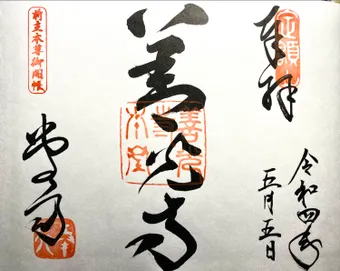 奉拝
令和四年
五月五日
善光寺
前立本尊御開帳